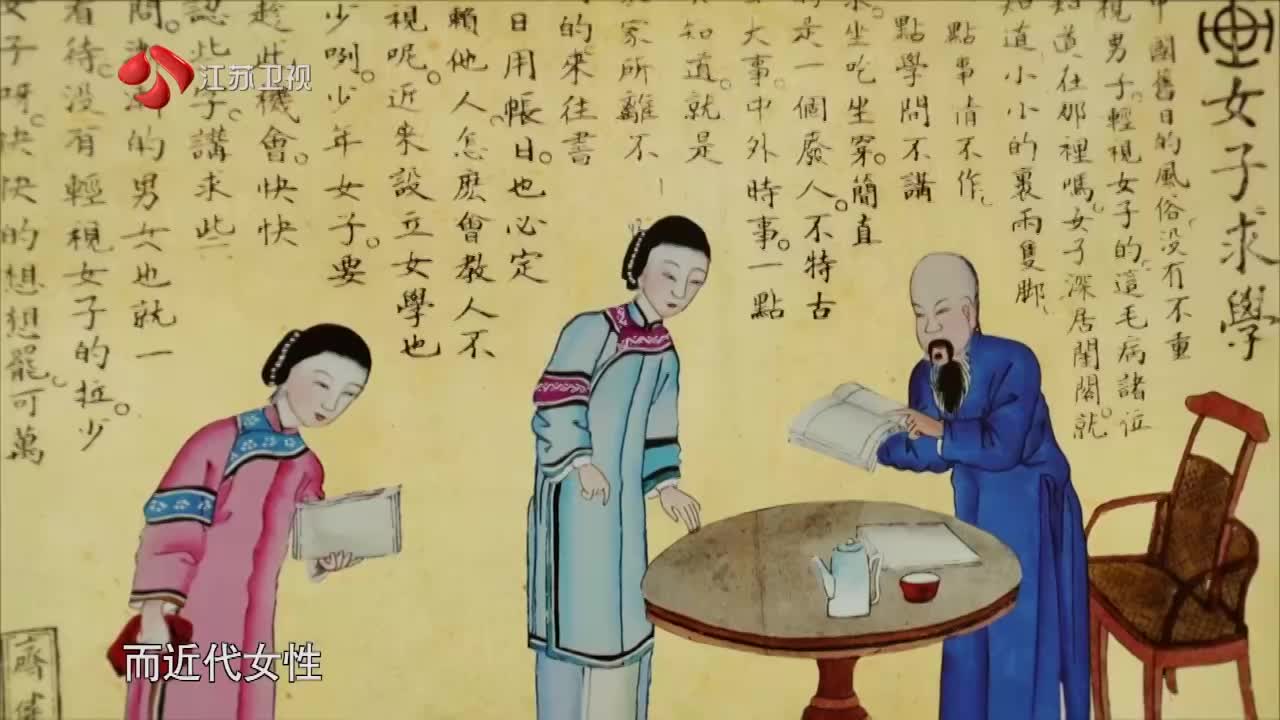 江苏卫视
女子求學
中國舊日的風俗。没有不重
視男子。輕視女子的。這毛病諸位
知道在那裡嗎。女子深居閨閣。就
知道小小的裹兩隻脚、
點事情不作。
點學問不講
求。坐吃坐穿。簡直
的是一個廢人。不特古
大事。中外時事。一點
知道。就是
家所離不
的來往書
日用帳日。也必定
賴他人。怎麽會教人不
視呢。近來設立女學也
少咧。少年女子。要
趁此機會。快快
認些子。講求些
問。的男女也就一
看待。没有輕視女子的拉。少
女子呀。快快的想想罷。可萬
齊
而近代女性